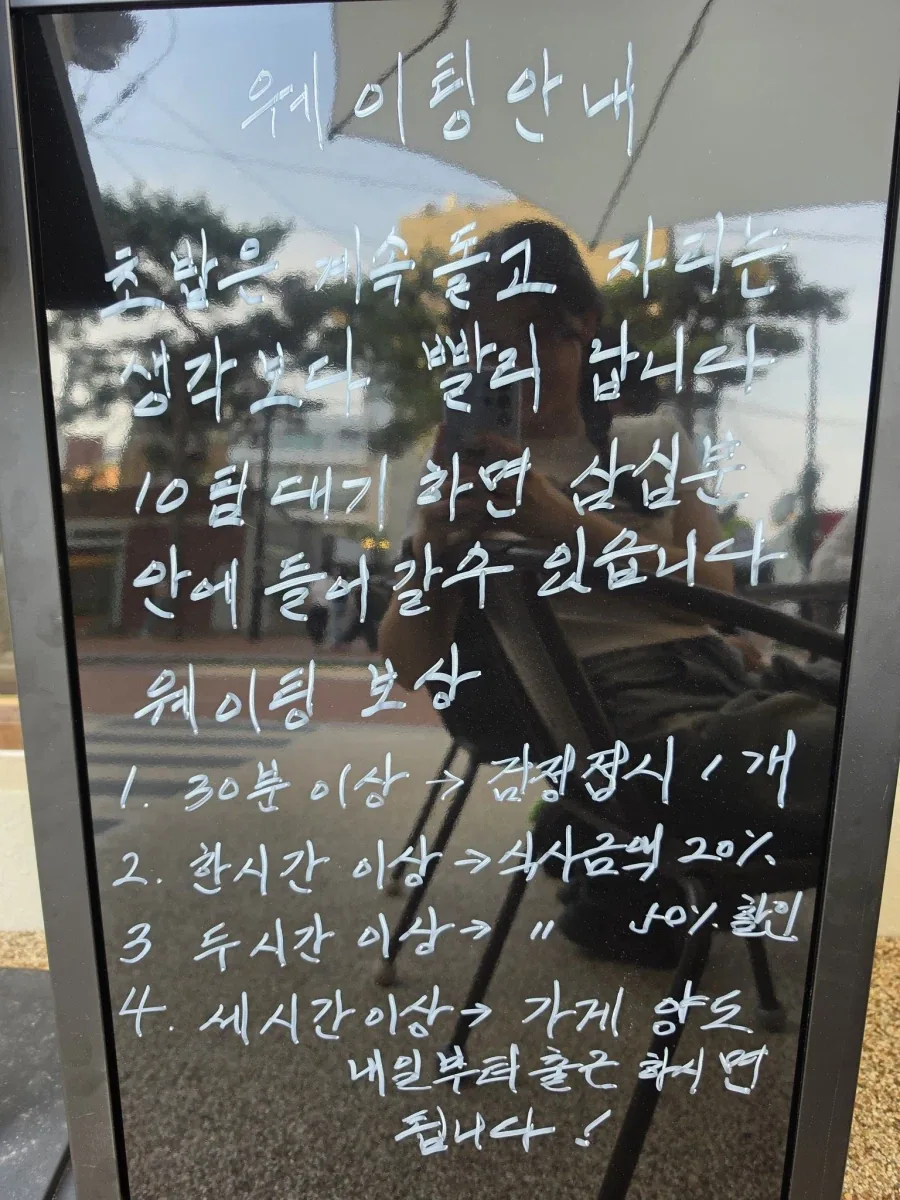 웨이팅안내
초밥은 계속 돌고 자리는
생각보다 빨리 납니다
10팀 대기 하면 삼십분
안에 들어갈수 있습니다
웨이팅 보상
1. 30분 이상 → 검정접시 1개
2. 한시간 이상 → 식사금액 20%
3 두시간 이상 → 〃 50% 할인
4. 세시간이상 → 가게 양도
내일부터 출근 하시면
됩니다!